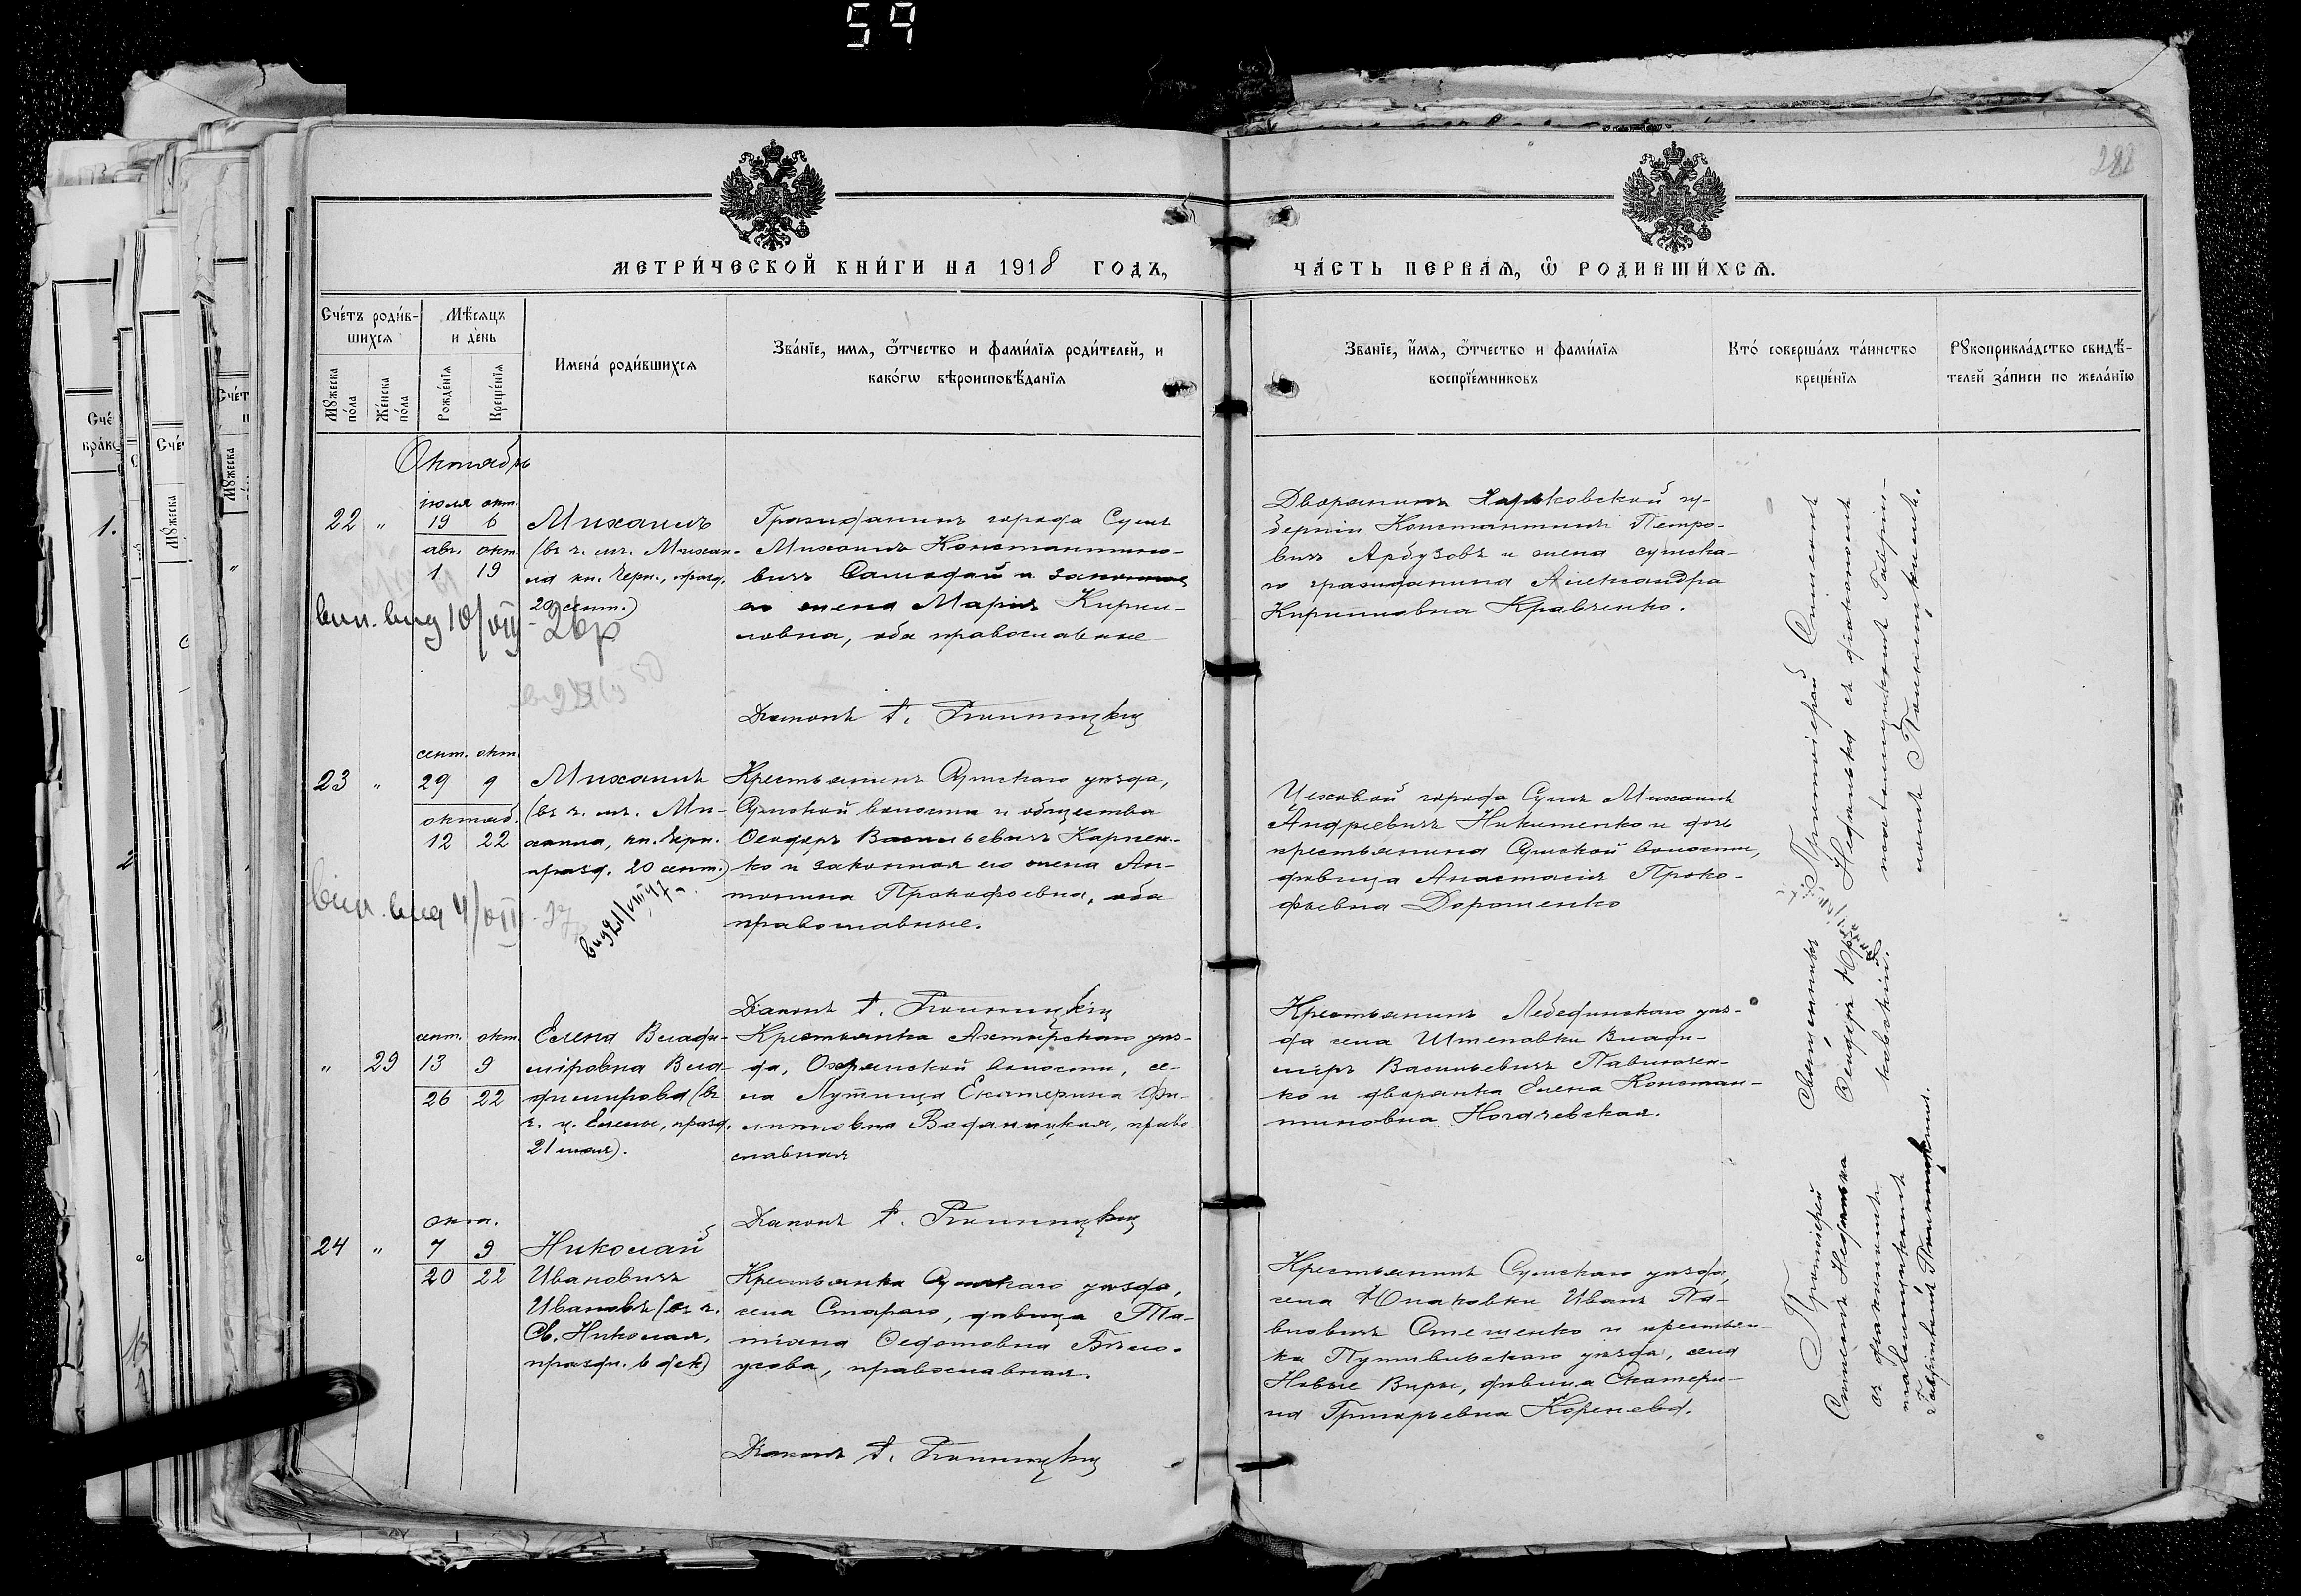 59
288
МЕТРИ́ЧЕСКОЙ КНИ́ГИ НА 1918 ГОДЪ,
ЧА́СТЬ ПЕРВАѦ, Ѿ РОДИВШИ́ХСѦ.
Сче́тъ роди́в-
шихсѧ
Мꙋ́жеска
по́ла
Же́нска
по́ла
Мѣ́сѧцъ
и де́нь
Рожде́нїѧ
Креще́нїѧ
Имена́ роди́вшихсѧ
Зва́нїе, имѧ, ѿтчество и фами́лїѧ роди́телей, и
како́гѡ вѣроисповѣ́данїѧ
Зва́нїе, и́мѧ, ѿтчество и фами́лїѧ
воспрїе́мниковъ
Кто́ соверша́лъ та́инство
креще́нїѧ
Рꙋкоприкла́дство свидѣ́-
телей за́писи по жела́нїю
Октябрь
22 "
іюля окт.
19 6
авг. окт.
1 19
Михаилъ
(въ ч. мч. Михаи-
ла кн. Черн., празд.
20 сент.)
вип. вид 10/VIII
Гражданинъ города Сумъ
Михаилъ Константино-
вичъ Самодай и законная
его жена Марія Кирил-
ловна, оба православные
Діаконъ
Дворянинъ Харьковской гу-
берніи Константинъ Петро-
вичъ Арбузовъ и жена сумска-
го гражданина Александра
Кирилловна Кравченко.
23 "
сент. окт.
29 9
октяб.
12 22
Михаилъ
(въ ч. мч. Ми-
хаила, кн. Черн.
празд. 20 сент.)
вип. вид 4/VIII
Крестьянинъ Сумскаго уѣзда,
Сумской волости и общества
Ѳеодоръ Васильевичъ Карпен-
ко и законная его жена Ан-
тонина Прокофьевна, оба
православные.
Діаконъ
Цеховой города Сумъ Михаилъ
Андреевичъ Никитенко и дочь
крестьянина Сумской волости,
дѣвица Анастасія Проко-
фьевна Дорошенко
" 29
сент. окт.
13 9
26 22
Елена Влади-
міровна Вла-
димирова (въ
ч. ц. Елены, празд.
21 мая).
Крестьянка Ахтырскаго уѣз-
да, волости, се-
ла Лутища Екатерина Фи-
липповна Водяницкая, право
славная
Діаконъ
Крестьянинъ Лебединскаго уѣз-
да села Штеповки Влади-
міръ Васильевичъ Павлючен-
ко и дворянка Елена Констан-
тиновна Ногачевская.
24 "
окт.
7 9
20 22
Николай
Ивановичъ
Ивановъ (въ ч.
Св. Николая,
праздн. 6 дек)
Крестьянка Сумскаго уѣзда,
села Стараго, дѣвица Та-
тіана Ѳедотовна Бѣло-
усова, православная.
Діаконъ
Крестьянинъ Сумскаго уѣзда,
села Юнаковки Иванъ Па-
вловичъ Стешенко и крестьян-
ка Путивльскаго уѣзда, села
Новые Виры, дѣвица Екатери-
на Григорьевна Коренева.
Протоіерей Симеонъ
съ діакономъ
Священникъ
Ѳеодоръ
Протоіерей
Симеонъ
съ діакономъ